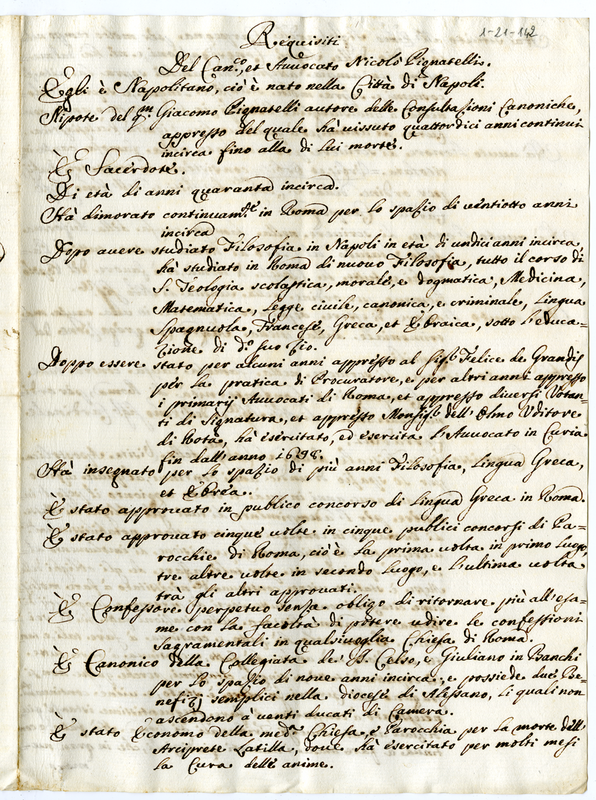 1-21-142
Requisiti
Del Can.co, et Avvocato Nicolò Pignatelli.
Egli è Napolitano, cioè nato nella Città di Napoli.
Nipote del qm. Giacomo Pignatelli autore delle Consultazioni Canoniche,
appresso del quale hà vissuto quattordici anni continui
incirca fino alla di lui morte.
È Sacerdote.
Di età di anni quaranta incirca.
Hà dimorato continuam.te in Roma per lo spazio di ventiotto anni
incirca
Dopo avere studiato Filosofia in Napoli in età di undici anni incirca,
hà studiato in Roma di nuovo Filosofia, tutto il corso di
S. Teologia scolastica, morale, e dogmatica, Medicina,
Matematica, Legge civile, canonica, e criminale, Lingua
Spagnuola, Francese, Greca, et Ebraica, sotto l'educa=
zione di d.o suo Zio.
Doppo essere stato per alcuni anni appresso al Sig.r Felice de Grandis
per la pratica di Procuratore, e per altri anni appresso
i primarij Avvocati di Roma, et appresso diversi Votan=
ti di Signatura, et appresso Monsig.r dell'Olmo Uditore
di Rota, hà esercitato, ed esercita l'Avvocato in Curia
fin dall'anno 1698.
Hà insegnato per lo spazio di più anni Filosofia, Lingua Greca,
et Ebrea.
È stato approvato in publico concorso di Lingua Greca in Roma.
È stato approvato cinque volte in cinque publici concorsi di Pa=
rocchie di Roma, cioè la prima volta in primo luogo,
tre altre volte in secondo luogo, e l'ultima volta
trà gli altri approvati.
È Confessore perpetuo senza obligo di ritornare più all'esa=
me con la facoltà di potere udire le confessioni
sagramentali in qualsivoglia Chiesa di Roma.
È Canonico della Collegiata de SS. Celso, e Giuliano in Banchi
per lo spazio di nove anni incirca, e possiede due Be=
nefizj semplici nella diocesi di Alessano, li quali non
ascendono a venti ducati di Camera.
È stato Economo della med.a Chiesa, e Parocchia per la morte dell'
Arciprete Latilla, dove hà esercitato per molti mesi
la Cura delle anime.